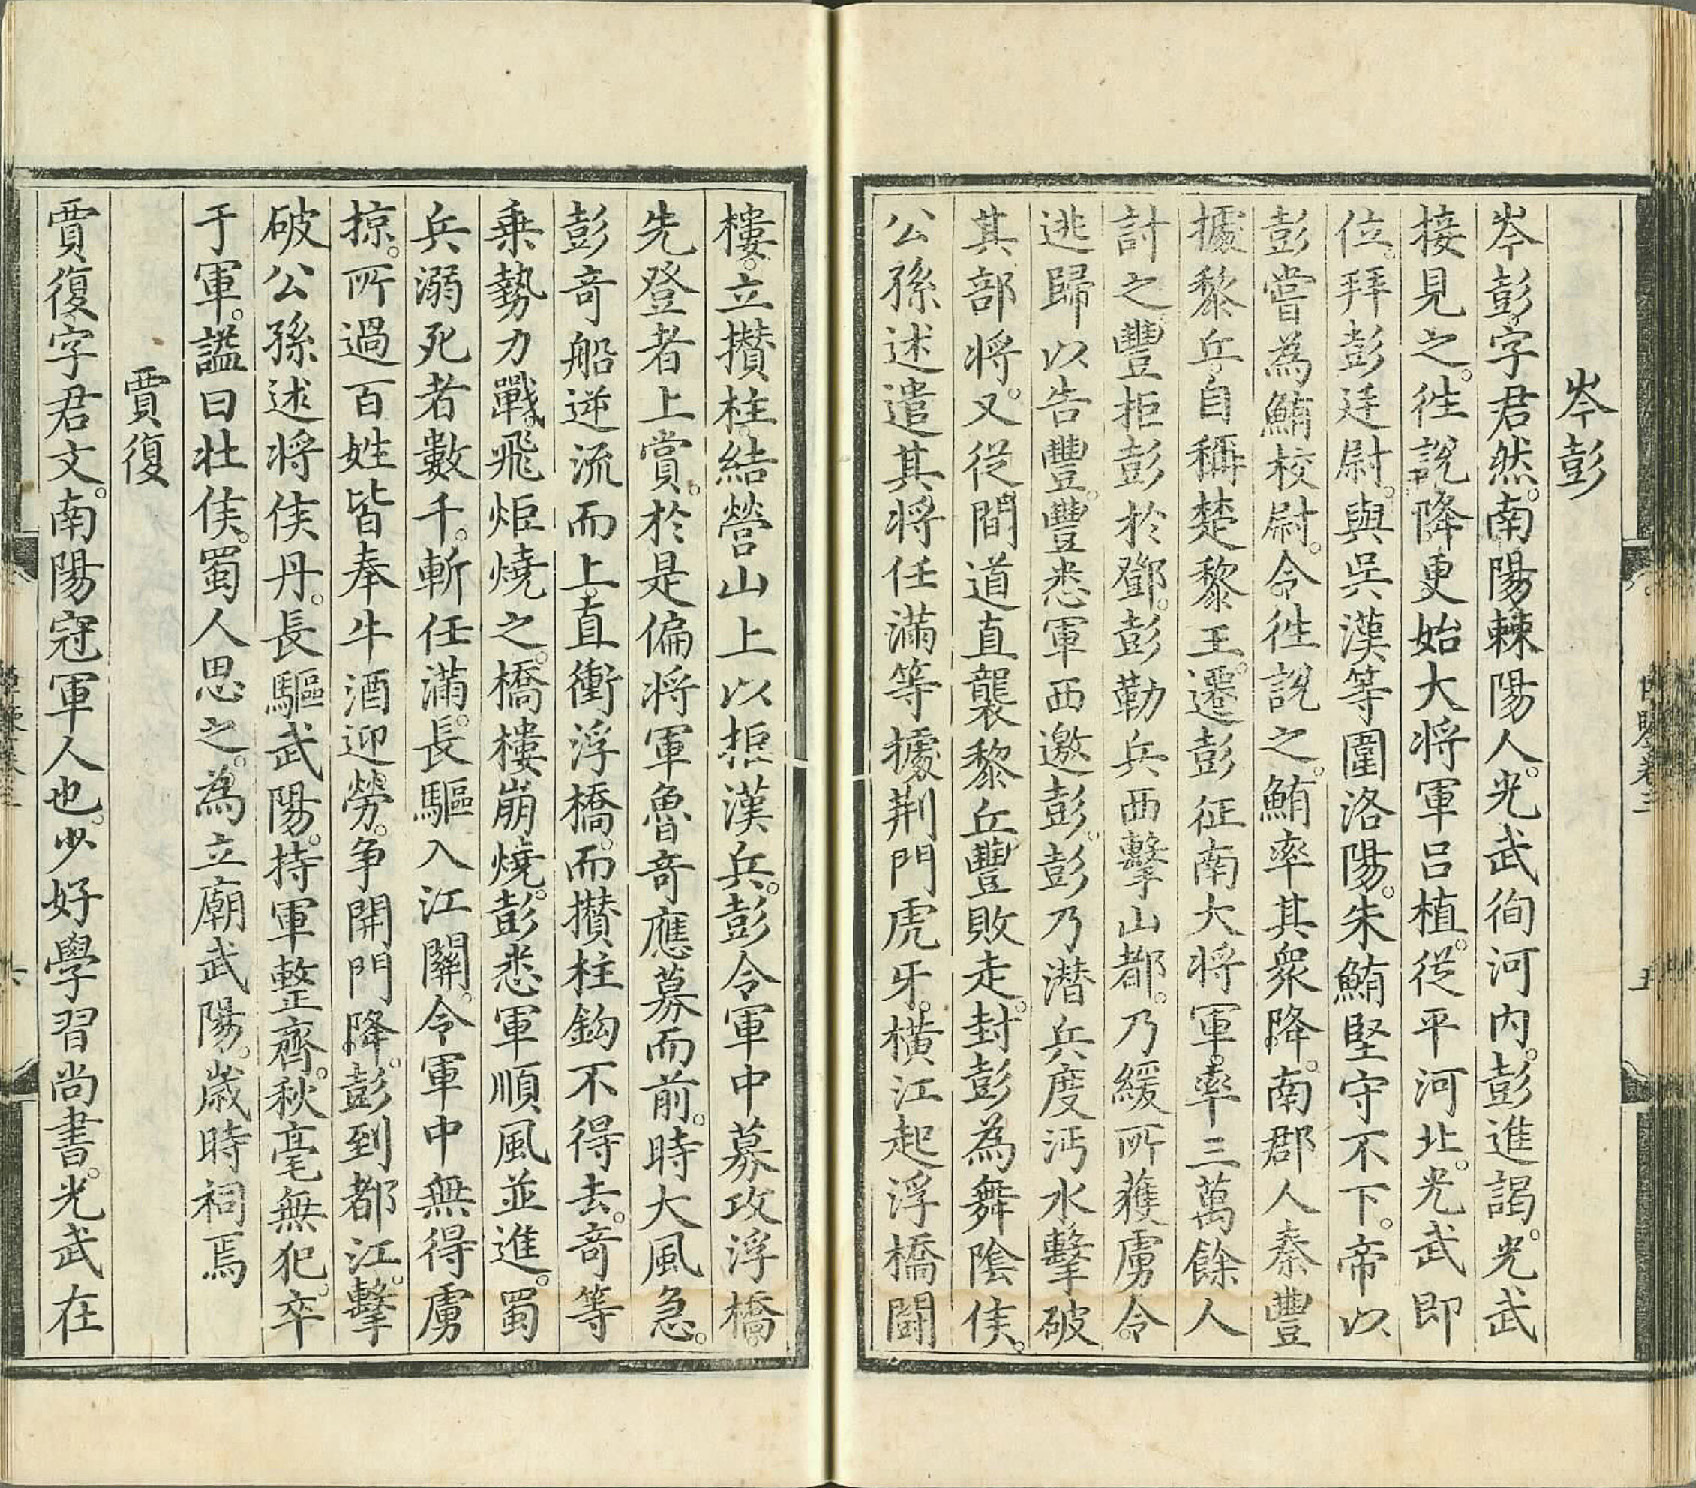 岑彭
岑彭。字君然。南陽棘陽人。光武徇河内。彭進謁。光武
接見之。徃説降更始大将軍呂植。從平河北。光武即
位。拜彭廷尉。與吳漢等圍洛陽。朱鮪堅守不下。帝以
彭嘗為鮪校尉。令徃説之。鮪率其衆降。南郡人秦豐
據黎丘。自稱楚黎王。遷彭征南大将軍。率三萬餘人
討之。豐拒彭於鄧。彭勒兵西擊山都。乃緩所獲虜。令
逃歸以告豐。豐悉軍西邀彭。彭乃潜兵度沔水擊破
其部将。又從間道直襲黎丘。豐敗走。封彭為舞陰侯。
公孫述遣其将任滿等據荆門虎牙。横江起浮橋鬪
樓。立攢柱結營山上以拒漢兵。彭令軍中募攻浮橋。
先登者上賞。於是偏将軍魯奇應募而前。時大風急。
彭奇船逆流而上。直衝浮橋。而攢柱鈎不得去。奇等
乗勢力戰。飛炬燒之。橋樓崩燒。彭悉軍順風並進。蜀
兵溺死者數千。斬任滿。長驅入江關。令軍中無得虜
掠。所過百姓皆奉牛酒迎勞。争開門降。彭到都江。擊
破公孫述将侯丹。長驅武陽。持軍整齊。秋毫無犯。卒
于軍。謚曰壮侯。蜀人思之。為立廟武陽。歳時祠焉
賈復
賈復字君文。南陽冠軍人也。少好學習尚書。光武在